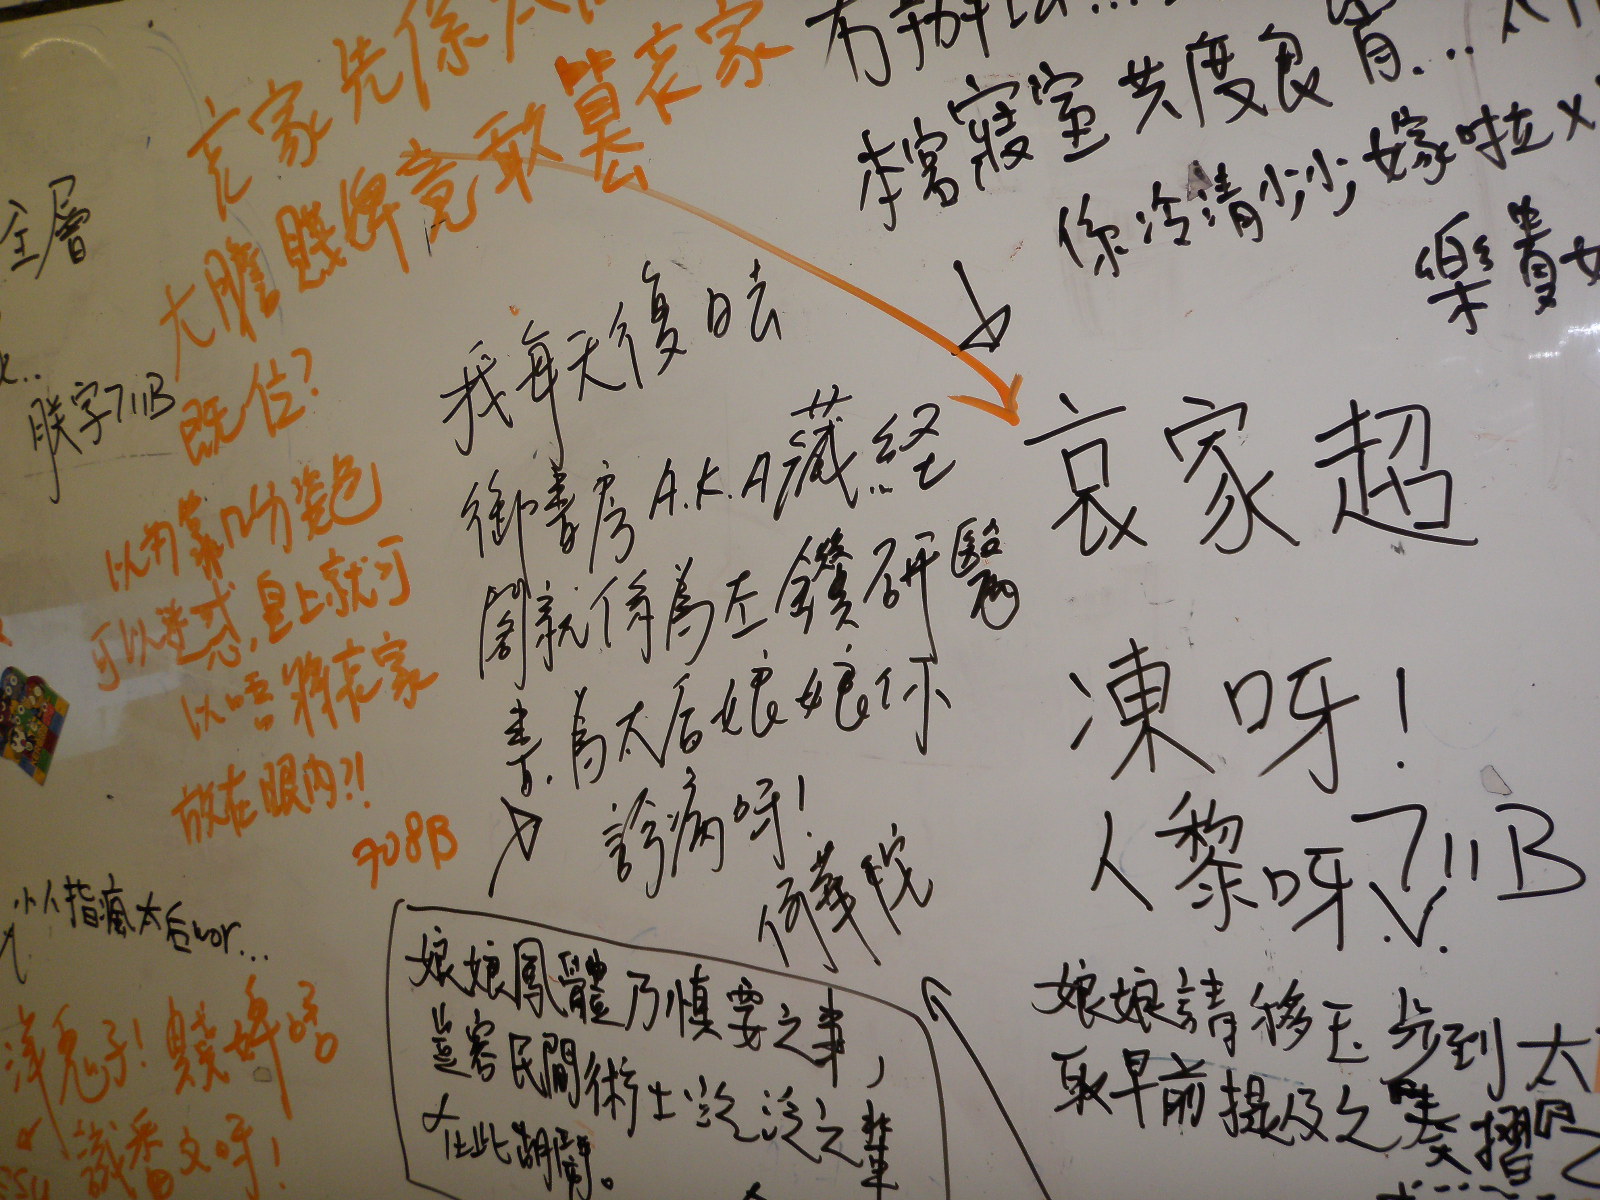 哀家先係太
大膽賤婢竟敢篡哀家
既位?
以為靠吓分姿色
可以迷惑皇上就可
以唔將哀家
放在眼內?!
708B
全層
朕字711B
小人指瘋太后wor...
洋鬼子!賤婢唔
識番文呀!
我每天復日去
御書房A.K.A藏經
閣就係為左鑽研醫
書.為太后娘娘你
診病呀!
娘娘鳳體乃慎要之事,
豈容民間術士
在此胡鬧。
有辦法...
本宮寢室共度良宵...
係冷清少少,嫁啦
樂
哀家超
凍呀!
(黎呀711B
娘娘請移玉步到太
取早前提及之奏摺